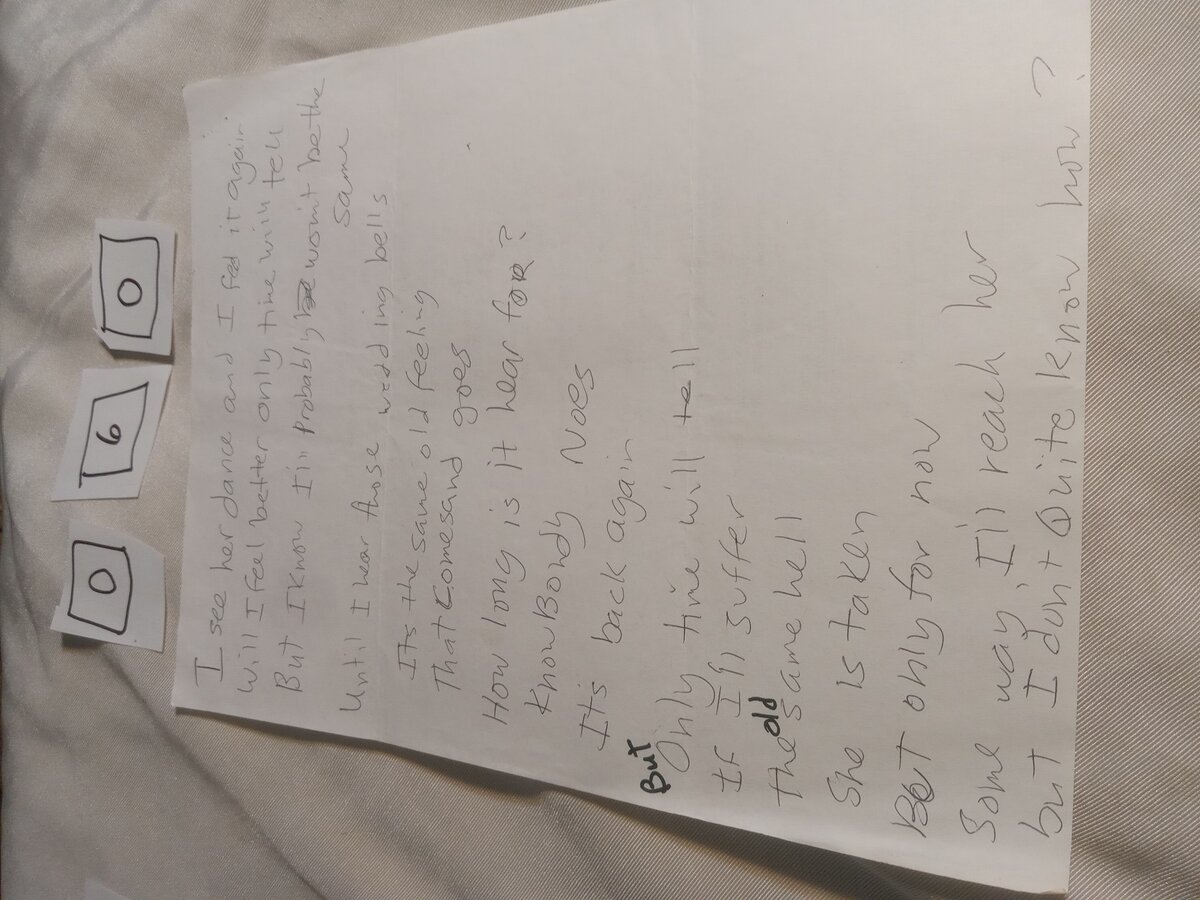 0 6 0
I see her dance and I feel it again
Will I feel better only time will tell
But I know I'll probably won't be the
same
Until I hear those wedding bells
Its the same old feeling
That comes and goes
How long is it hear for?
KnowBondy Noes
Its back again
But Only time will tell
If I'll suffer
the old same hell
She is taken
BUT only for now
Some way I'll reach her
but I don't Quite know how?